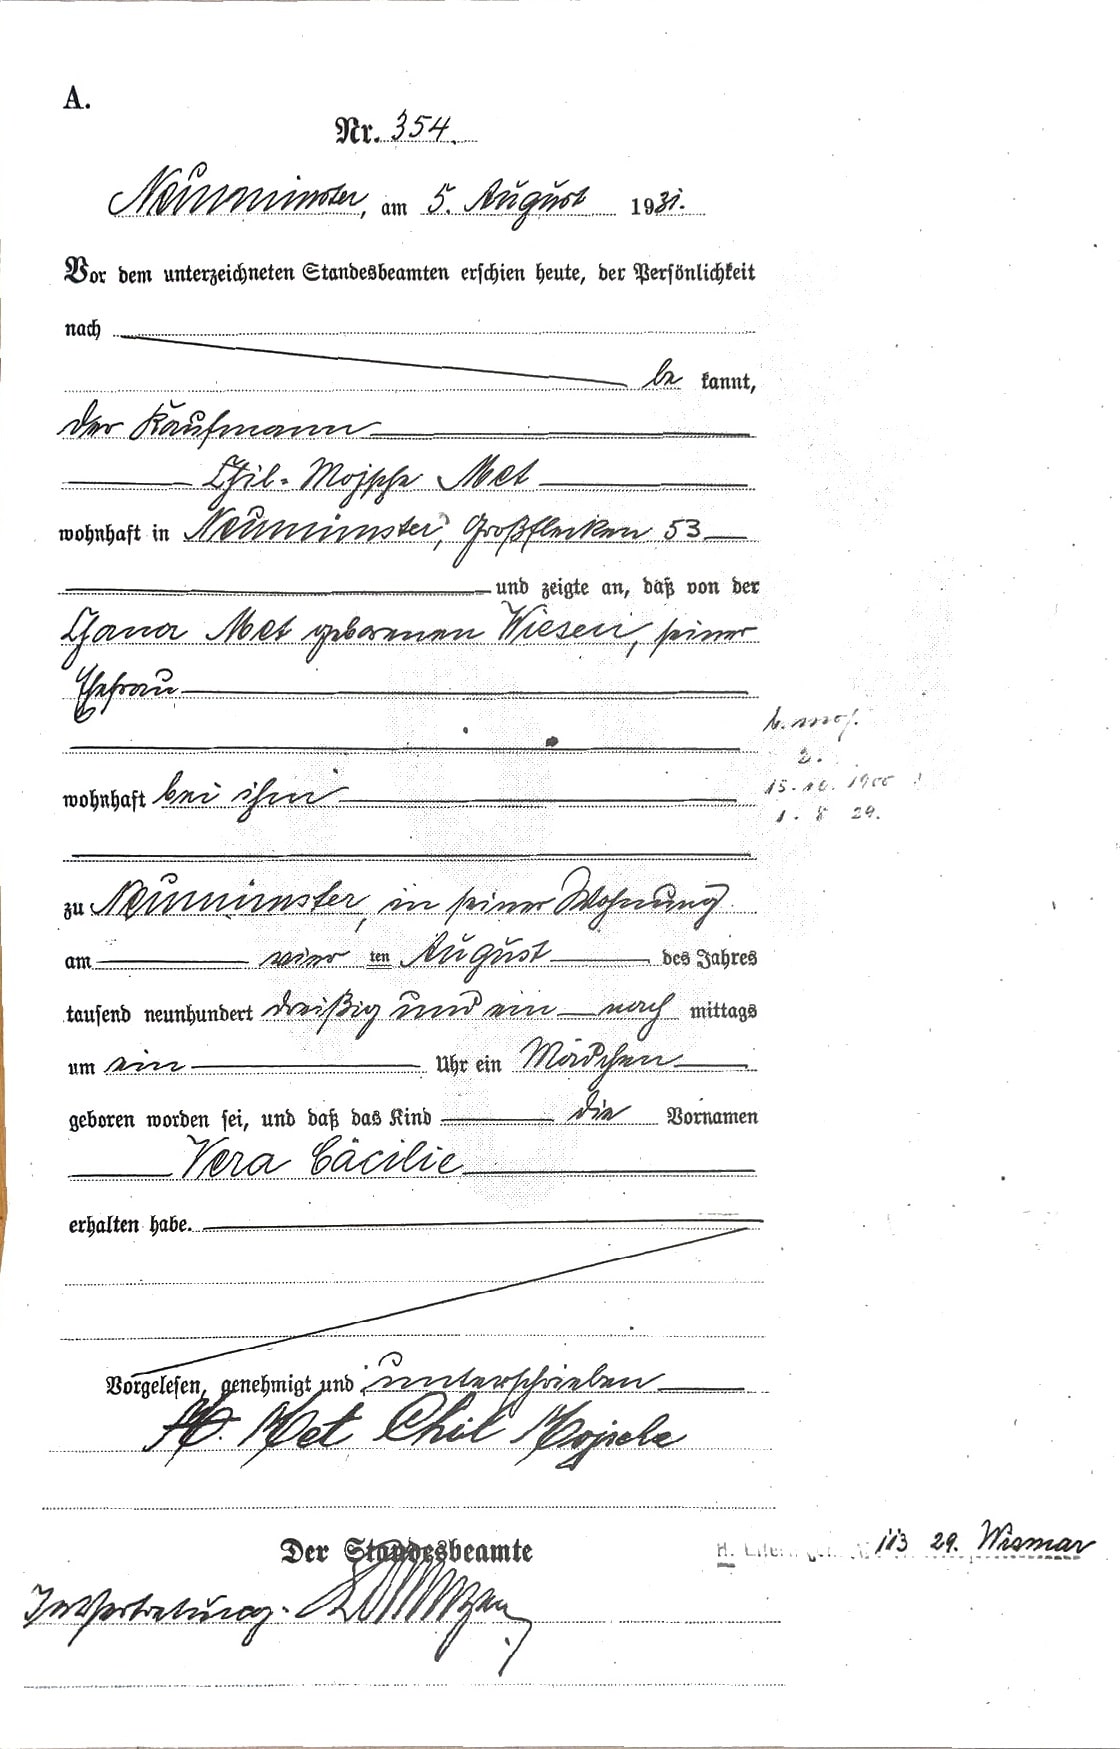 A.
Nr. 354.
Neumünster, am 5. August 1931.
Vor dem unterzeichneten Standesbeamten erschien heute, der Persönlichkeit
nach
be kannt,
der Kaufmann
Chil-Mojsche Met
wohnhaft in Neumünster, Großflecken 53
und zeigte an, daß von der
Chana Met geborenen Wiesen, seiner
Ehefrau
b. mos.
2.
wohnhaft bei ihm
15. 10. 1900
1. 8 29.
zu Neumünster, in seiner Wohnung
am vier ten August des Jahres
tausend neunhundert dreißig und ein nach mittags
um ein Uhr ein Mädchen
geboren worden sei, und daß das Kind die Vornamen
Vera Cäcilie
erhalten habe.
Vorgelesen, genehmigt und unterschrieben
Met Chil Mojsche
Der Standesbeamte
113 29. Wismar
In Vertretung.